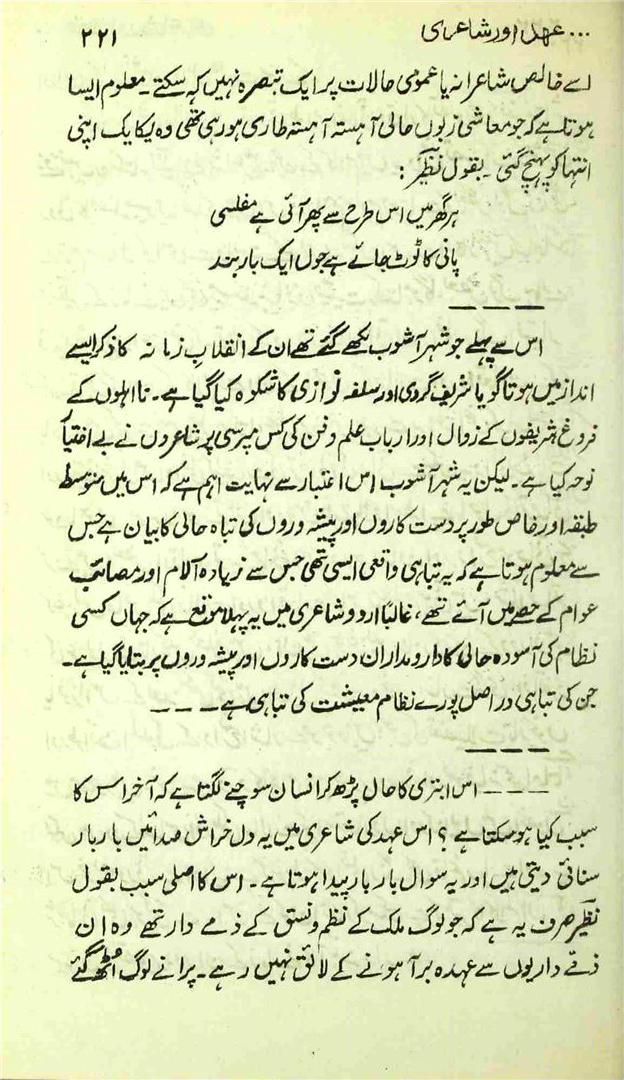 ... عہد اور شاعری ۲۲۱
اسے خالص شاعرانہ یا عمومی حالات پر ایک تبصرہ نہیں کہہ سکتے۔ معلوم ایسا
ہوتا ہے کہ جو معاشی زبوں حالی آہستہ آہستہ طاری ہو رہی تھی وہ یکایک اپنی
انتہا کو پہنچ گئی۔ بقول نظیرؔ:
ہر گھر میں اس طرح سے پھر آئی ہے مفلسی
پانی کا ٹوٹ جائے ہے جوں ایک بار بند
ـــ ـــ ـــ
اس سے پہلے جو شہر آشوب لکھے گئے تھے ان کے انقلابِ زمانہ کا ذکر ایسے
انداز میں ہوتا گویا شریف گردی اور سفلہ نوازی کا شکوہ کیا گیا ہے۔ نااہلوں کے
فروغ شریفوں کے زوال اور ارباب علم و فن کی کس مپرسی پر شاعروں نے بے اختیار
نوحہ کیا ہے۔ لیکن یہ شہر آشوب اس اعتبار سے نہایت اہم ہے کہ اس میں متوسط
طبقہ اور خاص طور پر دست کاروں اور پیشہ وروں کی تباہ حالی کا بیان ہے جس
سے معلوم ہوتا ہے کہ یہ تباہی واقعی ایسی تھی جس سے زیادہ آلام اور مصائب
عوام کے حصہ میں آئے تھے، غالباً اردو شاعری میں یہ پہلا موقع ہے کہ جہاں کسی
نظام کی آسودہ حالی کا دار و مدار ان دست کاروں اور پیشہ وروں پر بتایا گیا ہے۔
جن کی تباہی دراصل پورے نظام معیشت کی تباہی ہے۔ ـ ـ ـ
ـــ ـــ ـــ
ـ ـ ـ ـ اس ابتری کا حال پڑھ کر انسان سوچنے لگتا ہے کہ آخر اس کا
سبب کیا ہو سکتا ہے؟ اس عہد کی شاعری میں یہ دل خراش صدائیں بار بار
سنائی دیتی ہیں اور یہ سوال بار بار پیدا ہوتا ہے۔ اس کا اصلی سبب بقول
نظیرؔ صرف یہ ہے کہ جو لوگ ملک کے نظم و نسق کے ذمے دار تھے وہ ان
ذمے داریوں سے عہدہ برآ ہونے کے لائق نہیں رہے۔ پرانے لوگ اُٹھ گئے